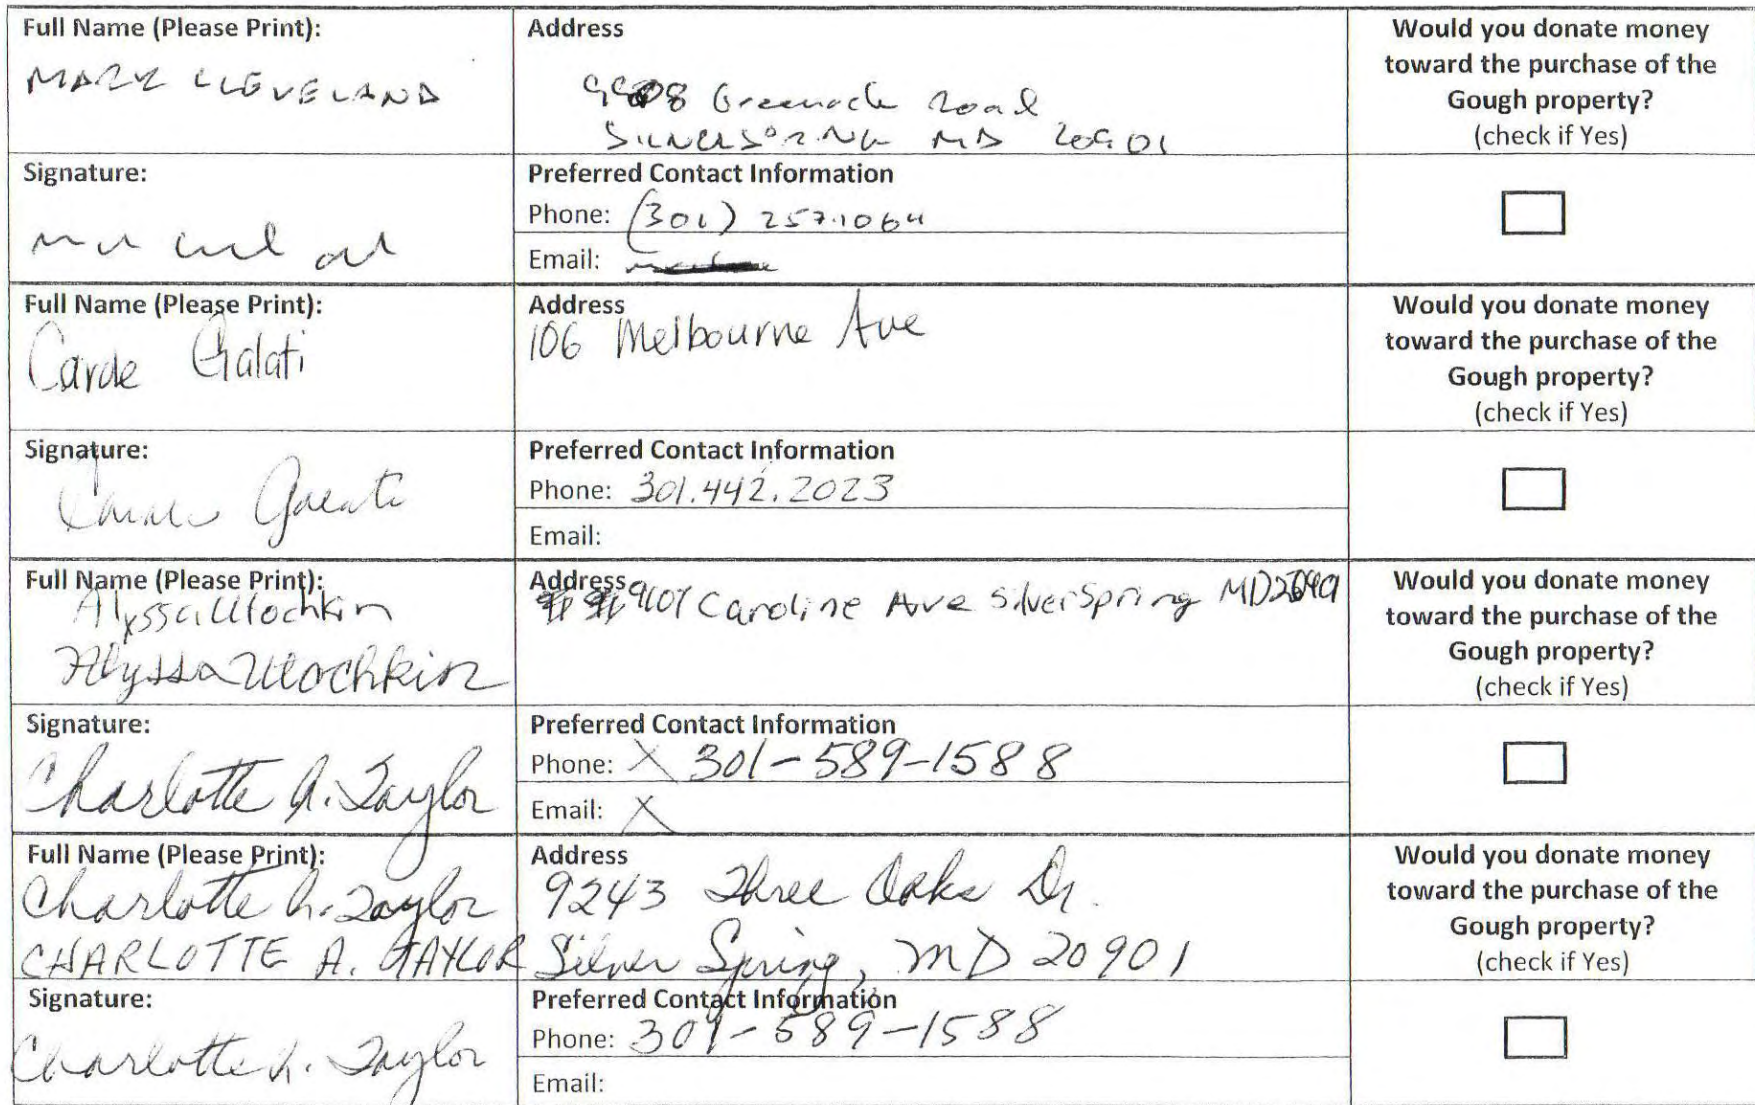 Full Name (Please Print):
MARK CLEVELAND
Address
Greenock Road
SILVER SPRING MD 20901
Would you donate money
toward the purchase of the
Gough property?
(check if Yes)
Signature:
Preferred Contact Information
Phone: (301) 257.1064
Email:
Full Name (Please Print):
Carole Galati
Address
106 Melbourne Ave
Would you donate money
toward the purchase of the
Gough property?
(check if Yes)
Signature:
Carole Galati
Preferred Contact Information
Phone: 301.442.2023
Email:
Full Name (Please Print):
Alyssa Ulochkin
Alyssa Ulochkin
Address
Caroline Ave Silver Spring MD
Would you donate money
toward the purchase of the
Gough property?
(check if Yes)
Signature:
Charlotte A. Taylor
Preferred Contact Information
Phone: X 301-589-1588
Email: X
Full Name (Please Print):
Charlotte A. Taylor
CHARLOTTE A. TAYLOR
Address
9243 Three Oaks Dr.
Silver Spring, MD 20901
Would you donate money
toward the purchase of the
Gough property?
(check if Yes)
Signature:
Charlotte A. Taylor
Preferred Contact Information
Phone: 301-589-1588
Email: